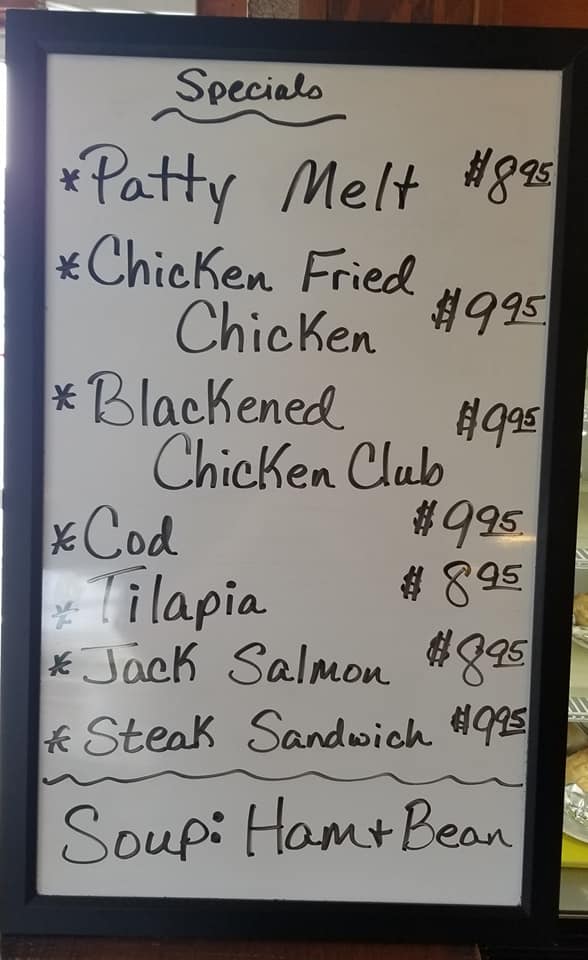 Specials
*Patty Melt $8.95
*Chicken Fried
Chicken $9.95
*Blackened $9.95
Chicken Club
*Cod $9.95
*Tilapia $8.95
*Jack Salmon $8.95
*Steak Sandwich $9.95
Soup: Ham + Bean